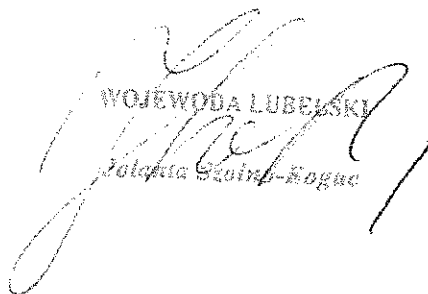 WOJEWODA LUBELSKI
Jolanta Szołno-Koguc